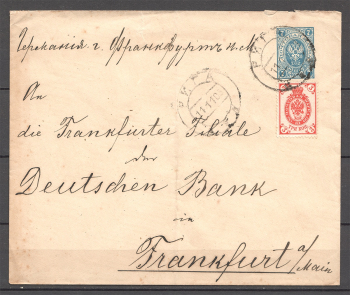 Германия г. Франкфуртъ н. М.
An
die Frankfurter Filiale
der
Deutschen Bank
in
Frankfurt a/Main
РИГА
РИГА
7
7